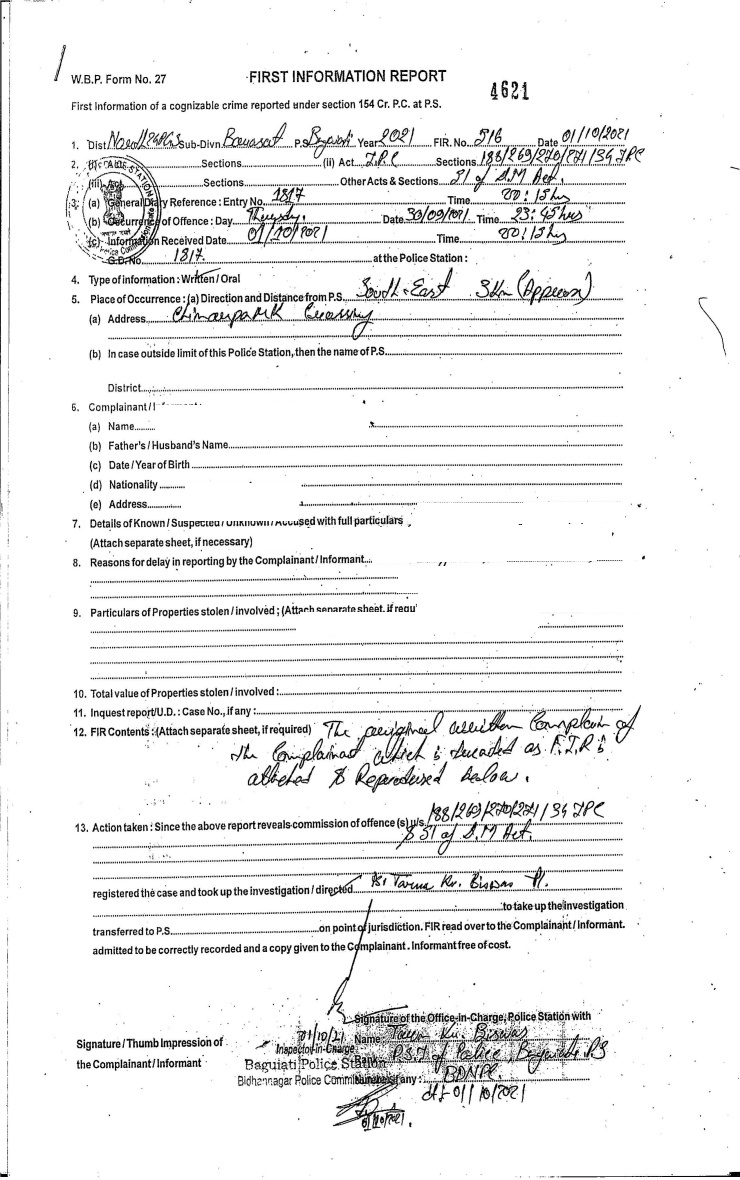 W.B.P. Form No. 27
FIRST INFORMATION REPORT
4621
First Information of a cognizable crime reported under section 154 Cr. P.C. at P.S.
1. Dist Sub-Divn. Barasat P.S. Year 2021 FIR. No. 516 Date 01/10/2021
2. Sections (ii) Act I.P.C Sections 188/269/270/271/34 IPC
(iii) Act Sections Other Acts & Sections 51 of D.M Act.
3. (a) General Diary Reference : Entry No. 1817 Time 00:15 hrs
(b) Occurrence of Offence : Day Date 30/09/2021 Time 23:45 hrs
(c) Information Received Date 01/10/2021 Time 00:15 hrs
G.D. No. 1817. at the Police Station :
4. Type of information : Written / Oral
5. Place of Occurrence : (a) Direction and Distance from P.S. South-East 3Km (Approx)
(a) Address Chinarpark Crossing
(b) In case outside limit of this Police Station, then the name of P.S.
District
6. Complainant /
(a) Name
(b) Father's / Husband's Name
(c) Date / Year of Birth
(d) Nationality
(e) Address
7. Details of Known / Suspected / Unknown / Accused with full particulars
(Attach separate sheet, if necessary)
8. Reasons for delay in reporting by the Complainant / Informant
9. Particulars of Properties stolen / involved ; (Attach separate sheet, if requ
10. Total value of Properties stolen / involved :
11. Inquest report/U.D. : Case No., if any :
12. FIR Contents : (Attach separate sheet, if required) The written Complain of
the Complainant which is as F.I.R is
& Reproduced below.
13. Action taken : Since the above report reveals commission of offence (s) u/s. 188/269/270/271/34 IPC
& 51 of D.M Act.
registered the case and took up the investigation / directed Kr. Biswas
to take up the investigation
transferred to P.S. on point of jurisdiction. FIR read over to the Complainant / Informant.
admitted to be correctly recorded and a copy given to the Complainant . Informant free of cost.
Signature of the Office-in-Charge, Police Station with
Signature / Thumb Impression of
the Complainant / Informant
01/10/21 Name: Kr. Biswas
Inspector-in-Charge
Baguiati Police Station
P.S.I of Police,
Bidhannagar Police any :
dt-01/10/2021
01/10/2021.